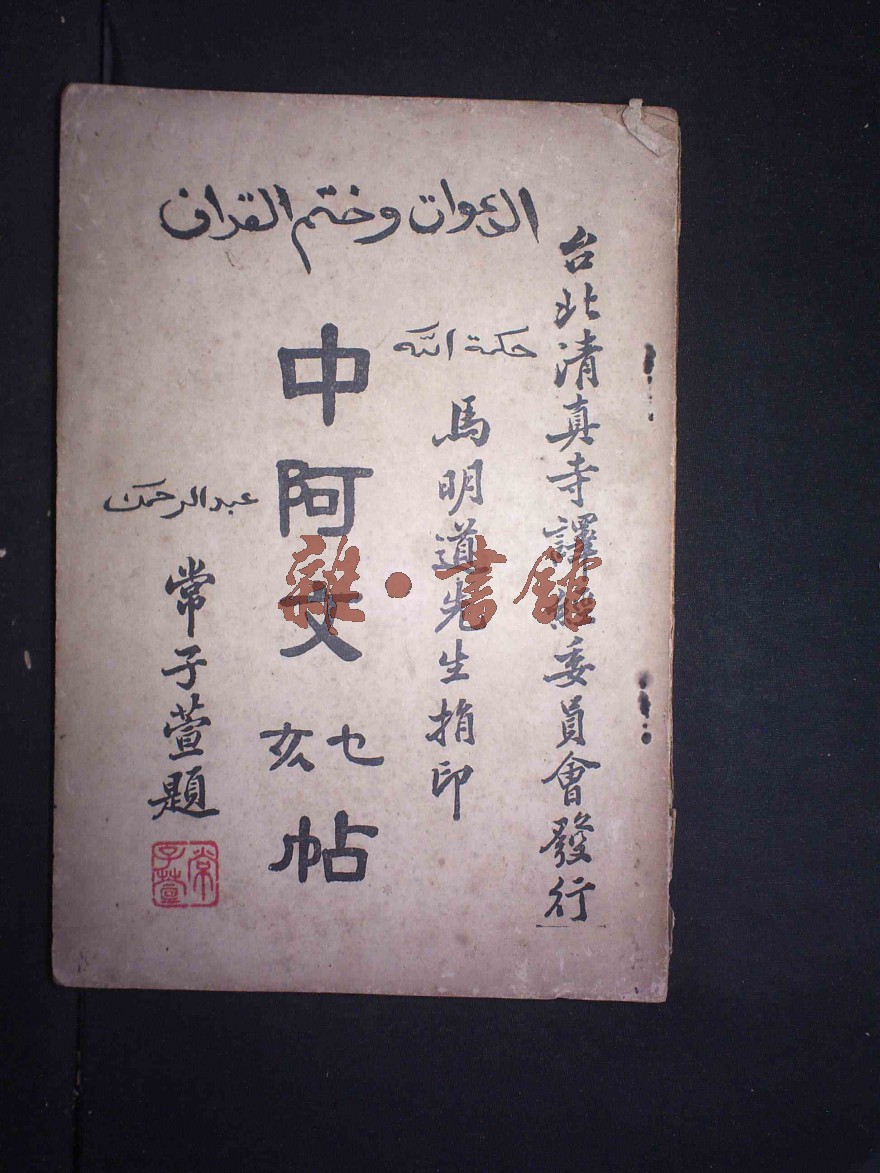 الدعوات وختم القران
台北清真寺譯經委員會發行
حكمة الله
馬明道先生捐印
中阿文乜亥帖
عبد الرحمن
常子萱題
常子萱
雜·書館